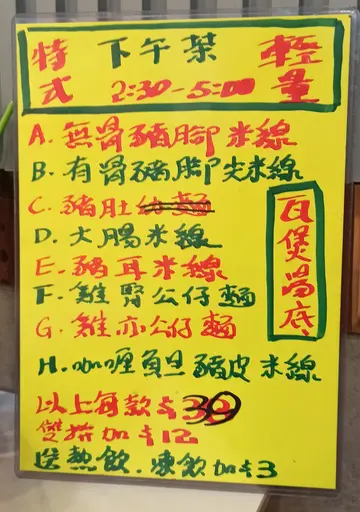 特式 下午茶 輕量
2:30-5:00
A. 無骨豬腳米線
B. 有骨豬腳尖米線
C. 豬肚
D. 大腸米線
E. 豬耳米線
F. 雞腎公仔麵
G. 雞亦公仔麵
H. 咖喱負旦豬皮米線
瓦煲湯底
以上每款$39
雙拼加$12
送熱飲.凍飲加$3